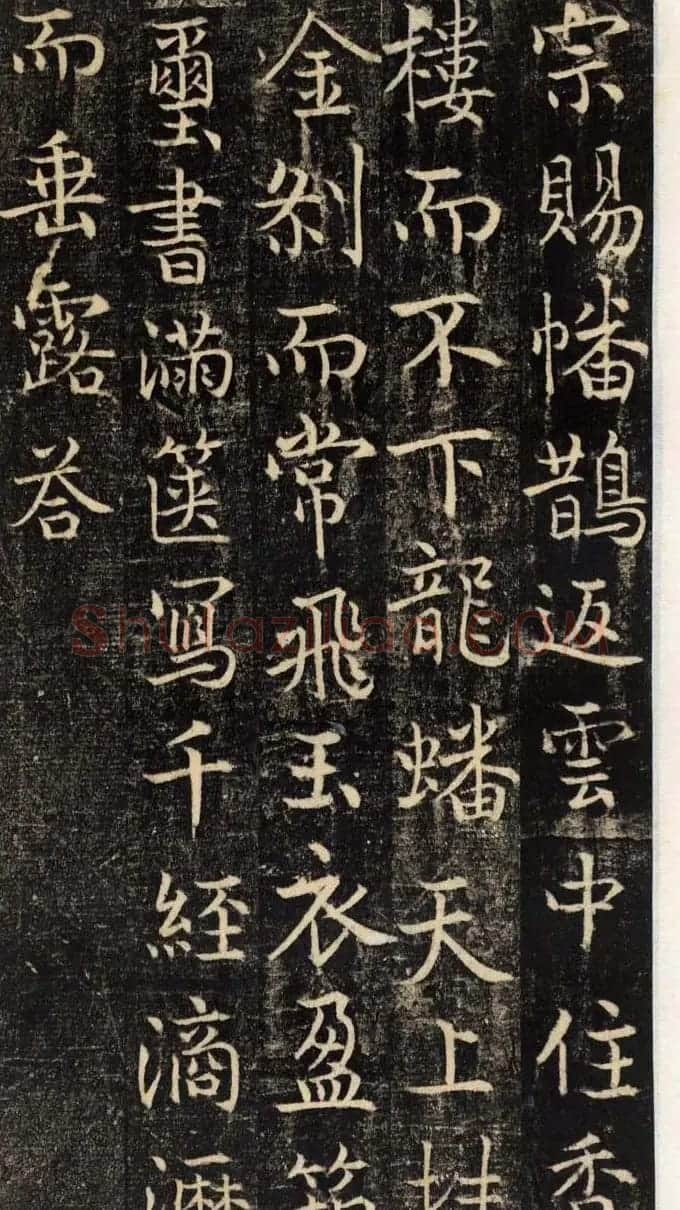 宗賜幡鵲返雲中住香
樓而不下龍蟠天上挂
金刹而常飛玉衣盈
璽書滿篋寫千經滴瀝
而垂露荅
Shufaziliao.COM